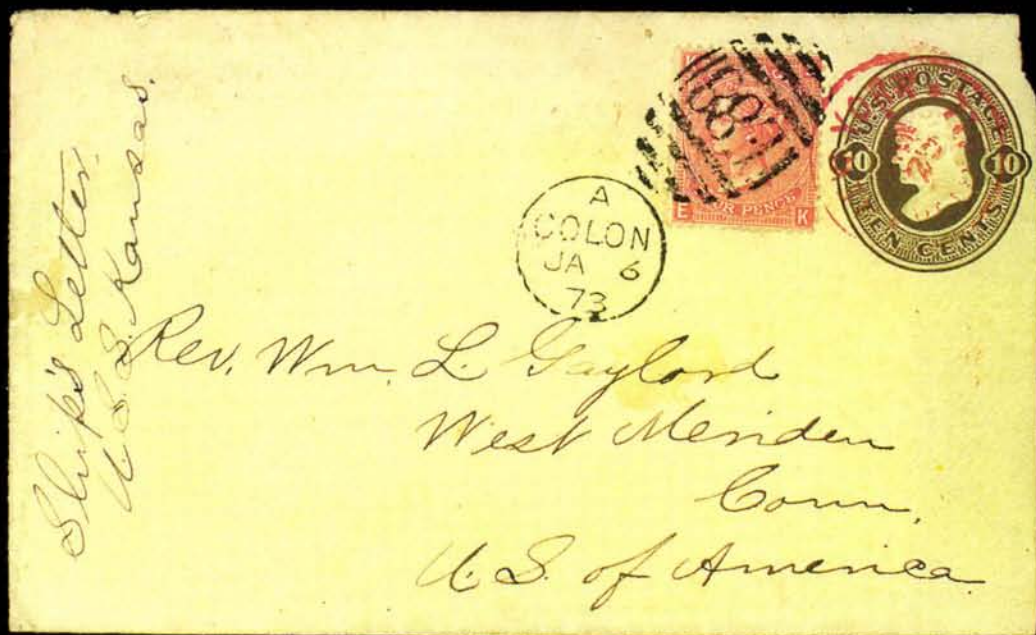 Ship's Letter
U.S.S. Kansas.
E88
FOUR PENCE
E K
A
COLON
JA 6
73
U.S. POSTAGE
10 10
TEN CENTS
Rev. Wm. L. Gaylord
West Meriden
Conn.
U.S. of America